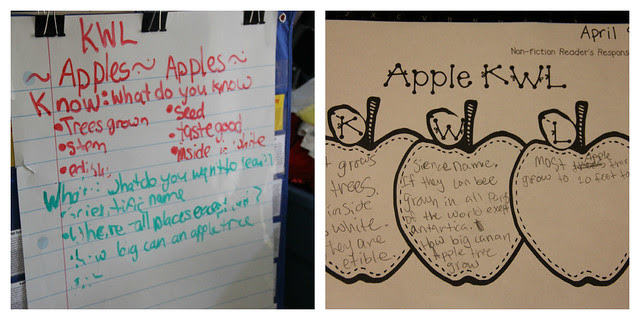 KWL
~Apples~ Apples~
Know: What do you know
•Trees grown
•stem
•seed
•taste good
•inside is white
What do you want to learn
name
•Where all places except
big can an apple tree
April
Non-Fiction Reader's Respons
Apple KWL
K
W
L
grows
trees.
inside
white.
hey are
etible
Sience name.
If they can bee
grown in all
of the world exept
antartica.
How big can an
Apple tree
grow
most Apple
grow to 20 feet ta